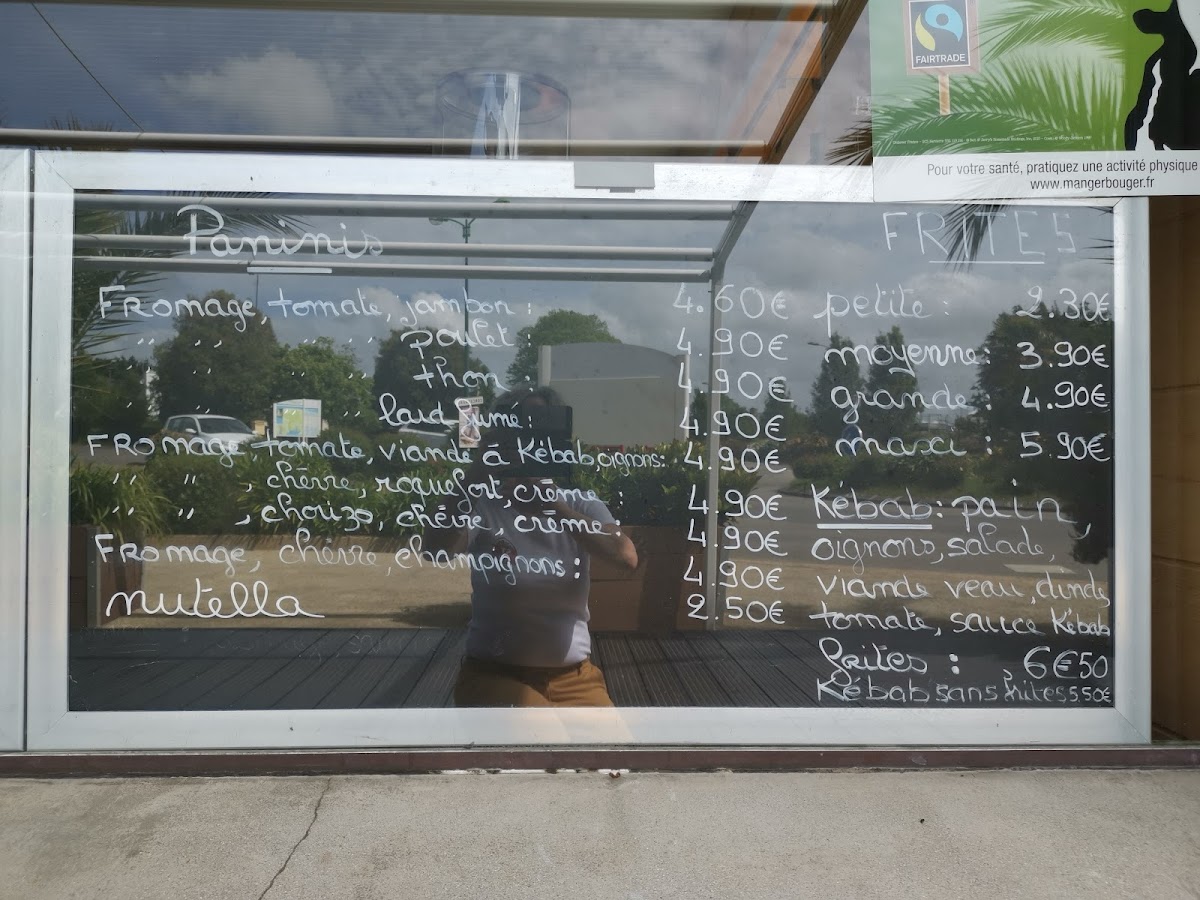 FAIRTRADE
Pour votre santé, pratiquez une activité physique
www.mangerbouger.fr
Paninis
Fromage, tomate, jambon : 4.60€
" " " poulet : 4.90€
" " " thon : 4.90€
" " " lard fumé : 4.90€
Fromage tomate, viande à Kébab, oignons : 4.90€
" " , chèvre, roquefort, crème : 4.90€
" " , chorizo, chèvre, crème : 4.90€
Fromage, chèvre, champignons : 4.90€
nutella 2.50€
FRITES
petite : 2.30€
moyenne : 3.90€
grande : 4.90€
maxi : 5.90€
Kébab : pain,
oignons, salade,
viande veau, dinde
tomate, sauce Kébab
frites : 6€50
Kébab sans frites 5.50€